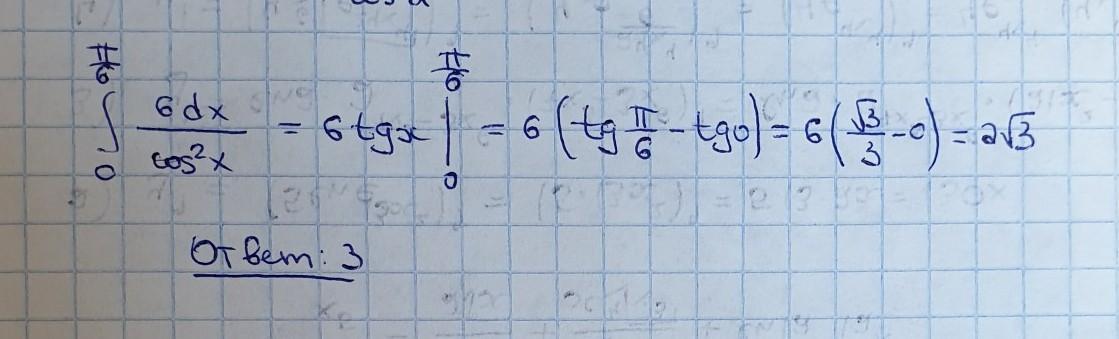 ∫₀^{π/6} 6dx / cos²x = 6 tgx |₀^{π/6} = 6 (tg π/6 - tg0) = 6 (√3/3 - 0) = 2√3
Ответ: 3